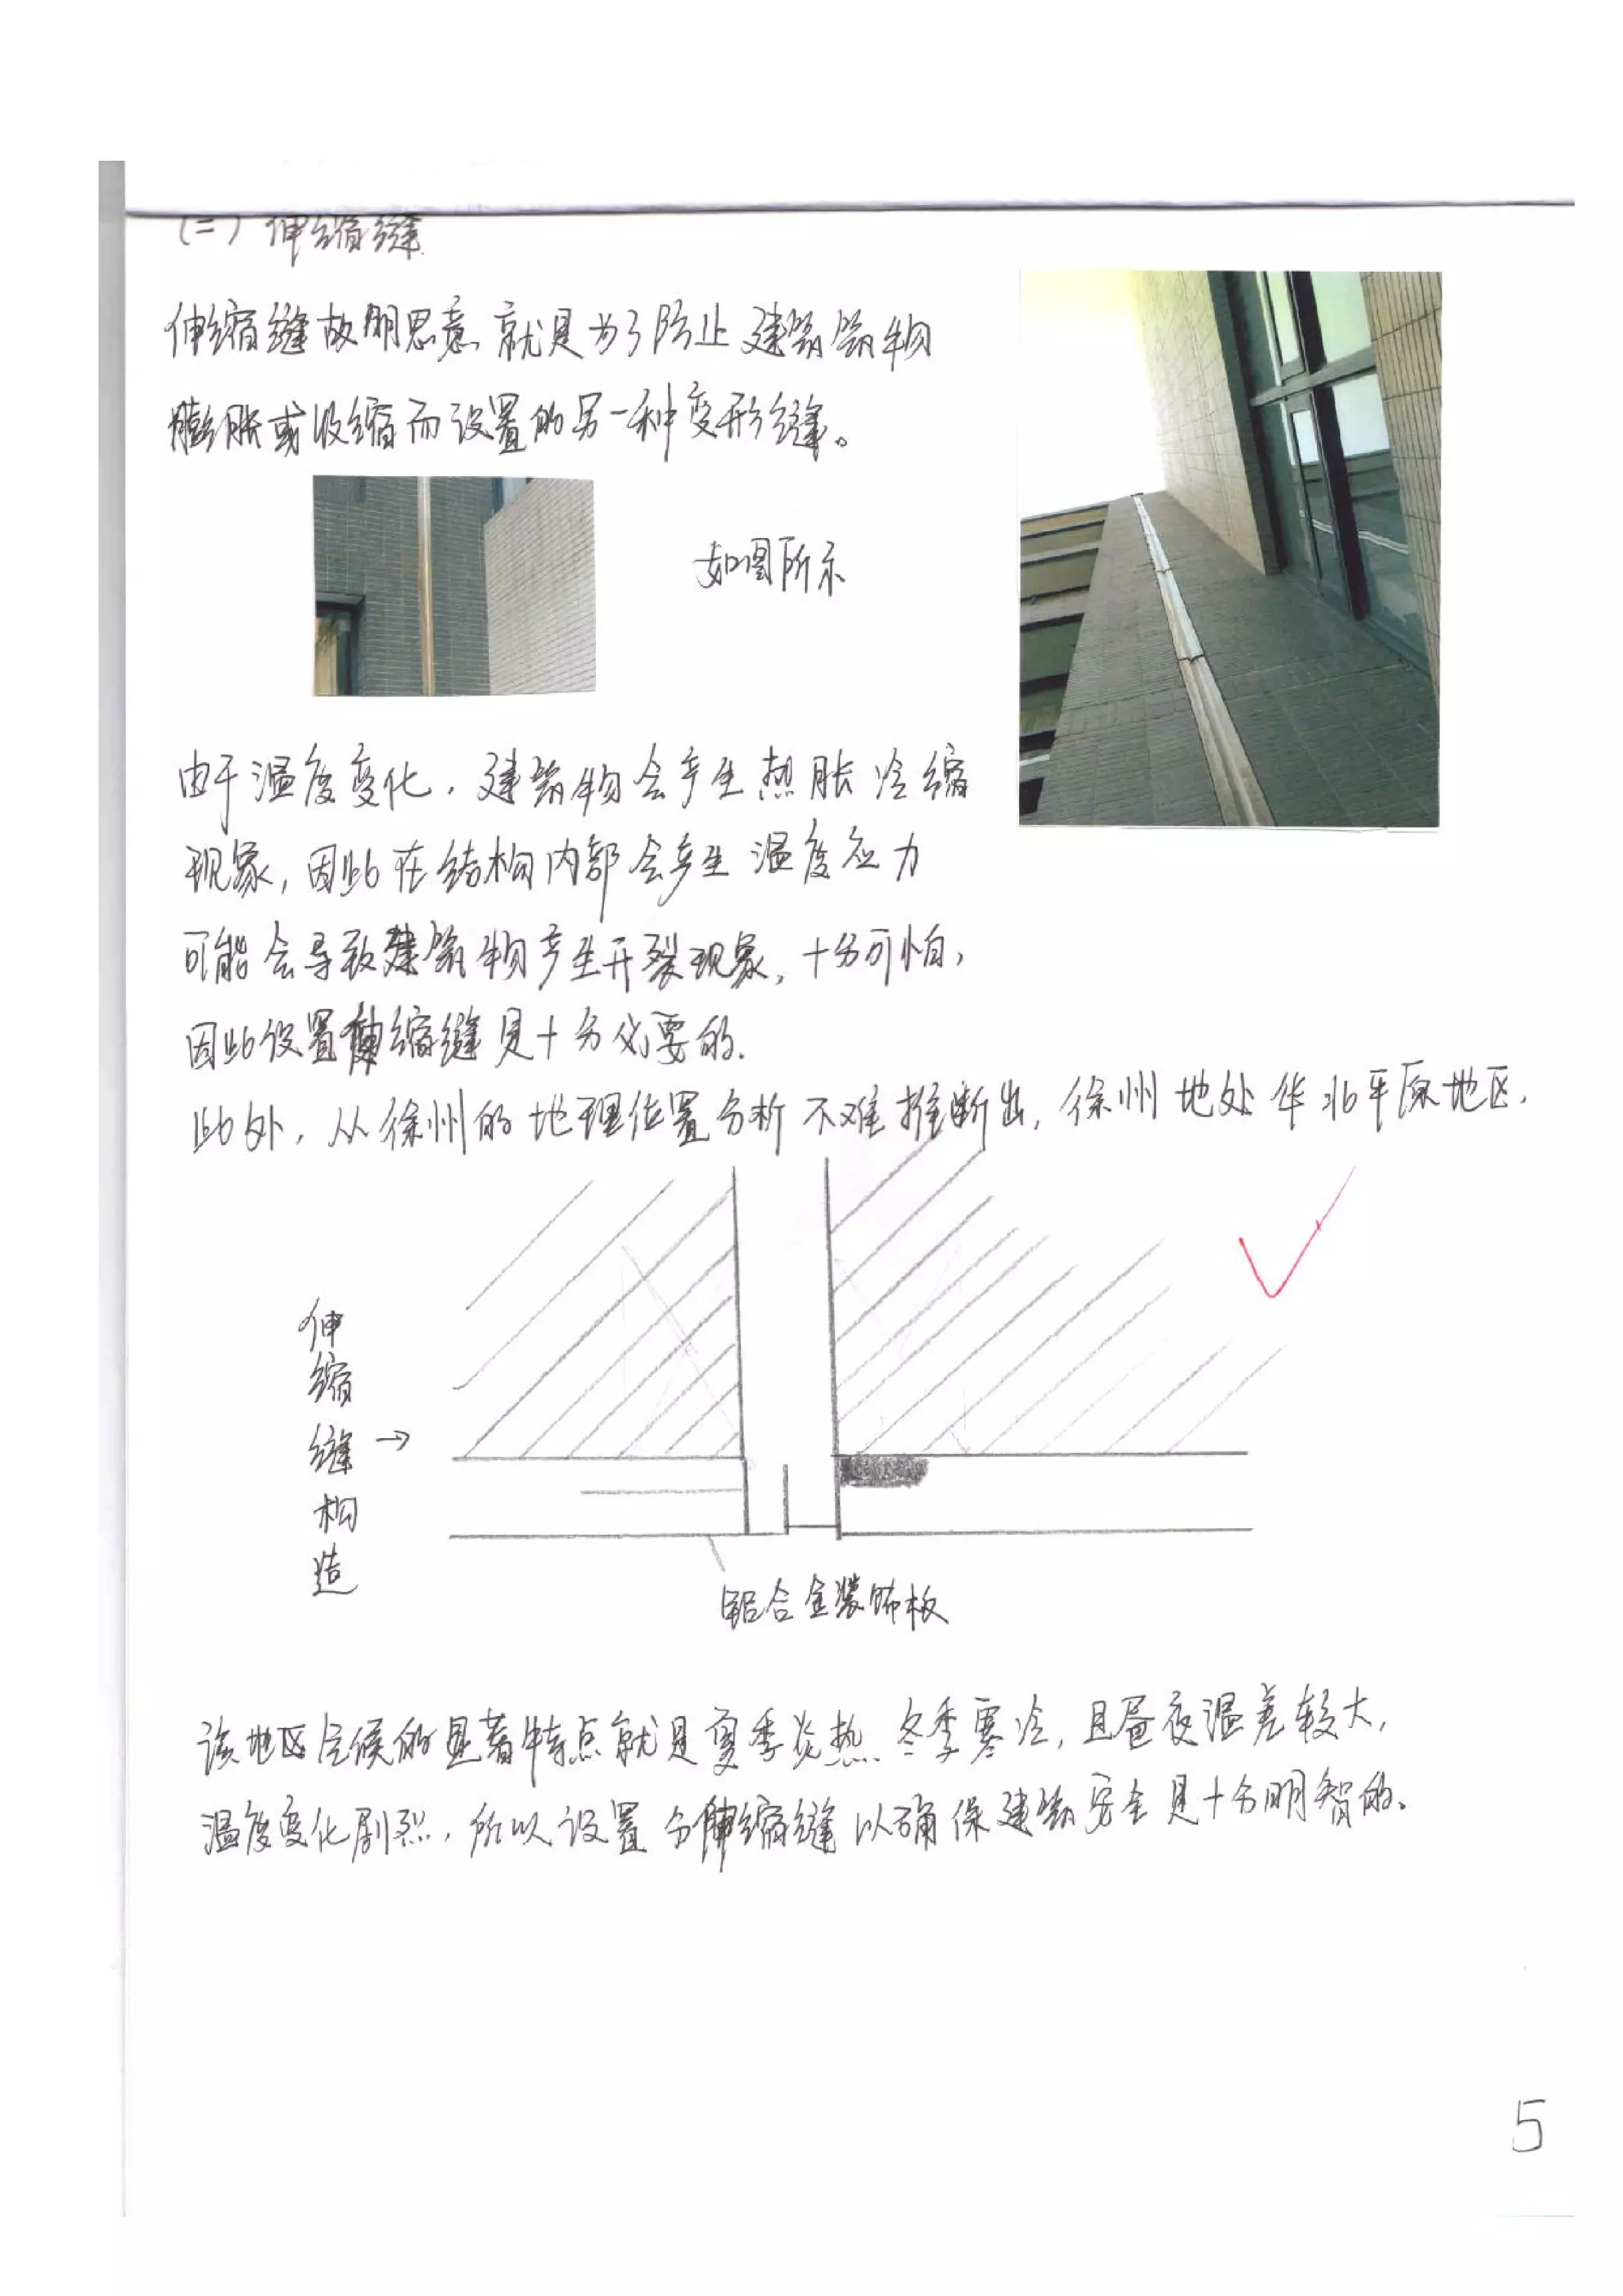 (二) 伸缩缝
伸缩缝故明思意、就是为了防止建筑筑物
膨胀或收缩而设置的另一种变形缝。
如图所示
由于温度变化，建筑物会产生热胀冷缩
现象，因此在结构内部会产生温度应力
可能会导致建筑物产生开裂现象，十分可怕，
因此设置伸缩缝是十分必要的.
此外，从徐州的地理位置分析不难推断出，徐州地处华北平原地区，
伸缩缝构造→
铝合金装饰板
该地区气候的显著特点就是夏季炎热、冬季寒冷，且昼夜温差较大，
温度变化剧烈，所以设置分伸缩缝以确保建筑安全是十分明智的。
5